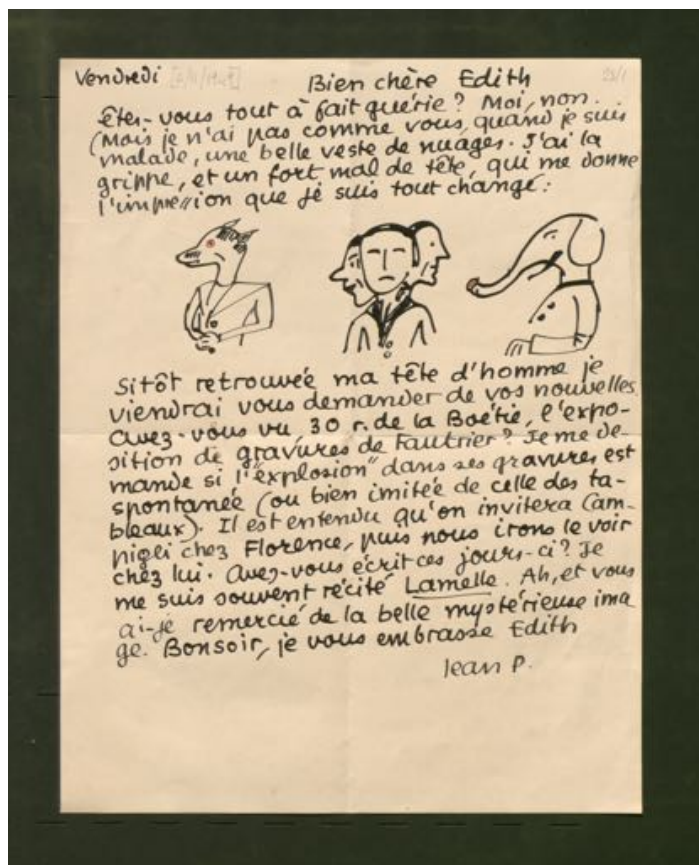 Vendredi
Bien chère Edith
êtes-vous tout à fait guérie? Moi, non.
(Mais je n'ai pas comme vous, quand je suis
malade, une belle veste de nuages. J'ai la
grippe, et un fort mal de tête, qui me donne
l'impression que je suis tout changé:
Sitôt retrouvée ma tête d'homme je
viendrai vous demander de vos nouvelles.
avez-vous vu, 30 r. de la Boétie, l'expo-
sition de gravures de Fautrier? Je me de-
mande si l'"explosion" dans ses gravures est
spontanée (ou bien imitée de celle des ta-
bleaux). Il est entendu qu'on invitera Cam-
pigli chez Florence, puis nous irons le voir
chez lui. avez-vous écrit ces jours-ci? Je
me suis souvent récité Lamelle. Ah, et vous
ai-je remercié de la belle mystérieuse ima
ge. Bonsoir, je vous embrasse Edith
Jean P.